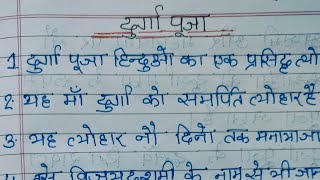 दुर्गा पूजा
1 दुर्गा पूजा हिन्दुओं का एक प्रसिद्ध त्यो
2. यह माँ दुर्गा को समर्पित त्योहार है
3. यह त्योहार नौ दिनों तक मनाया जा
विजयदशमी के नाम से भी जान